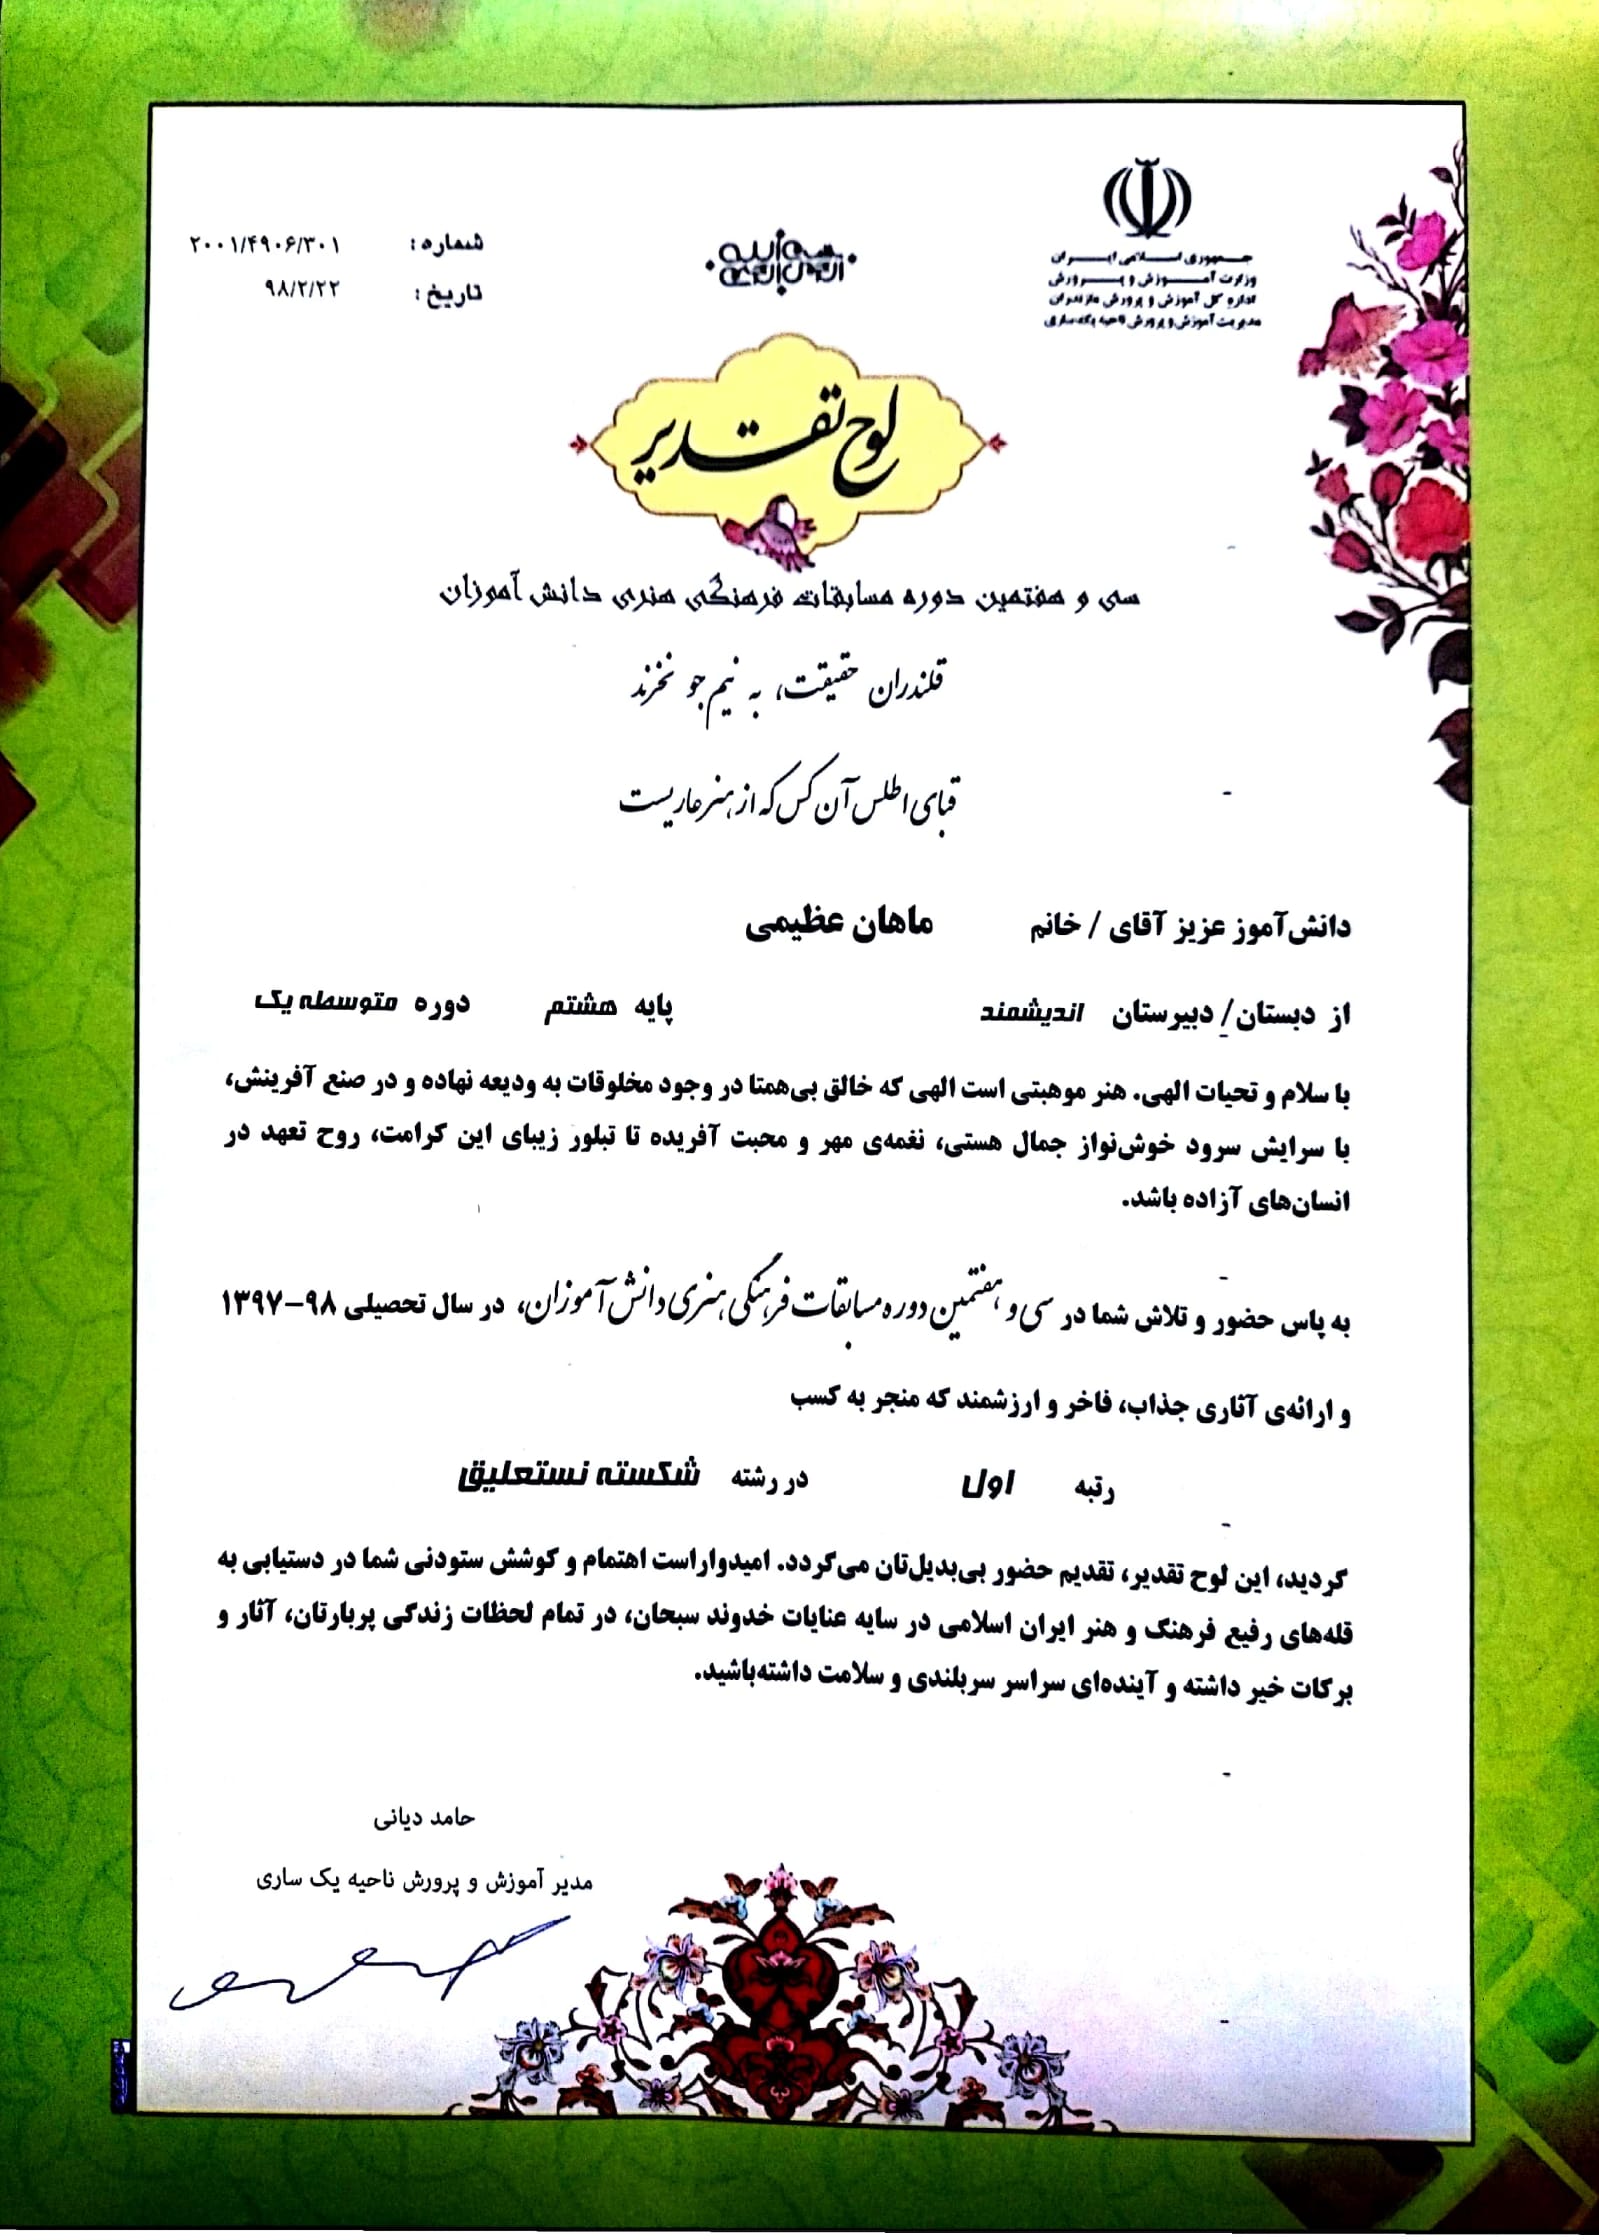 جمهوری اسلامی ایران
وزارت آموزش و پرورش
اداره کل آموزش و پرورش مازندران
مدیریت آموزش و پرورش ناحیه یک ساری
بسم الله الرحمن الرحیم
شماره: ۲۰۰۱/۴۹۰۶/۳۰۱
تاریخ: ۹۸/۲/۲۲
لوح تقدیر
سی و هفتمین دوره مسابقات فرهنگی هنری دانش آموزان
قلندران حقیقت، به نیم جو نخرند
قبای اطلس آن کس که از هنر عاریست
دانش‌آموز عزیز آقای / خانم ماهان عظیمی
از دبستان/ دبیرستان اندیشمند پایه هشتم دوره متوسطه یک
با سلام و تحیات الهی. هنر موهبتی است الهی که خالق بی‌همتا در وجود مخلوقات به ودیعه نهاده و در صنع آفرینش،
با سرایش سرود خوش‌نواز جمال هستی، نغمه‌ی مهر و محبت آفریده تا تبلور زیبای این کرامت، روح تعهد در
انسان‌های آزاده باشد.
به پاس حضور و تلاش شما در سی و هفتمین دوره مسابقات فرهنگی هنری دانش آموزان، در سال تحصیلی ۹۸-۱۳۹۷
و ارائه‌ی آثاری جذاب، فاخر و ارزشمند که منجر به کسب
رتبه اول در رشته شکسته نستعلیق
گردید، این لوح تقدیر، تقدیم حضور بی‌بدیل‌تان می‌گردد. امیدواراست اهتمام و کوشش ستودنی شما در دستیابی به
قله‌های رفیع فرهنگ و هنر ایران اسلامی در سایه عنایات خدوند سبحان، در تمام لحظات زندگی پربارتان، آثار و
برکات خیر داشته و آینده‌ای سراسر سربلندی و سلامت داشته‌باشید.
حامد دیانی
مدیر آموزش و پرورش ناحیه یک ساری